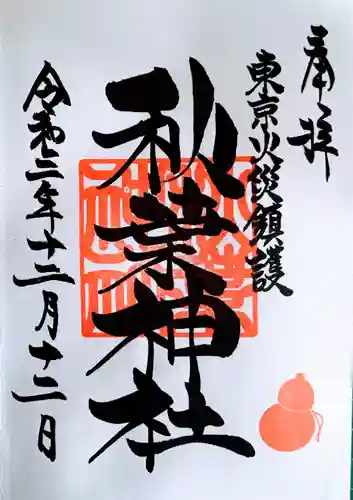 奉拝
東京火災鎮護
秋葉神社
令和二年十二月十二日